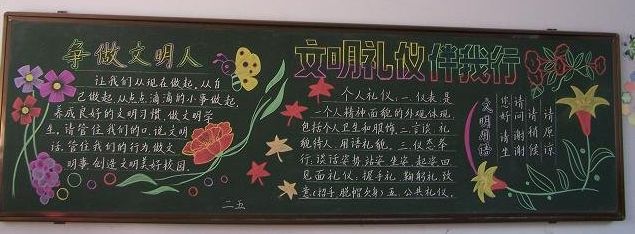 争做文明人
让我们从现在做起，从自
己做起，从点点滴滴的小事做起，
养成良好的文明习惯，做文明学
生，请管住我们的口，说文明
话，管住我们的行为，做文
明事，创造文明美好校园。
二五
文明礼仪伴我行
个人礼仪：一、仪表是
一个人精神面貌的外观体现，
包括个人卫生和服饰，二、言谈：礼
貌待人，用语礼貌，三、仪态举
行：谈话姿势，站姿，坐姿，起姿，四
见面礼仪：握手礼，鞠躬礼，致
意（招手，脱帽，欠身）五、公共礼仪。
文明用语
请原谅
请稍候
请问 谢谢
您好 请坐